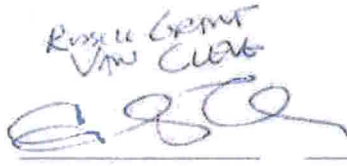 Russell Grant
Van Cleve